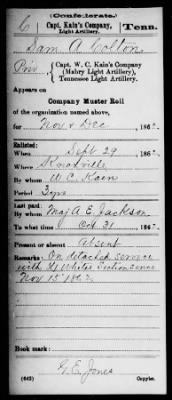 (Confederate.)
6 Capt. Kain's Company, Light Artillery. Tenn.
Sam A. Colton
Priv, Capt. W. C. Kain's Company
(Mabry Light Artillery),
Tennessee Light Artillery.
Appears on
Company Muster Roll
of the organization named above,
for Nov & Dec, 186
Enlisted:
When Sept 29, 186
Where Knoxville
By whom W. C. Kain
Period 3 yrs
Last paid:
By whom Maj A. E. Jackson
To what time Oct 31, 186
Present or absent Absent
Remarks: On detached service
with Lt White's Section since
Nov 15" 1862.
Book mark:
G. E. Jones
(642) Copyist.